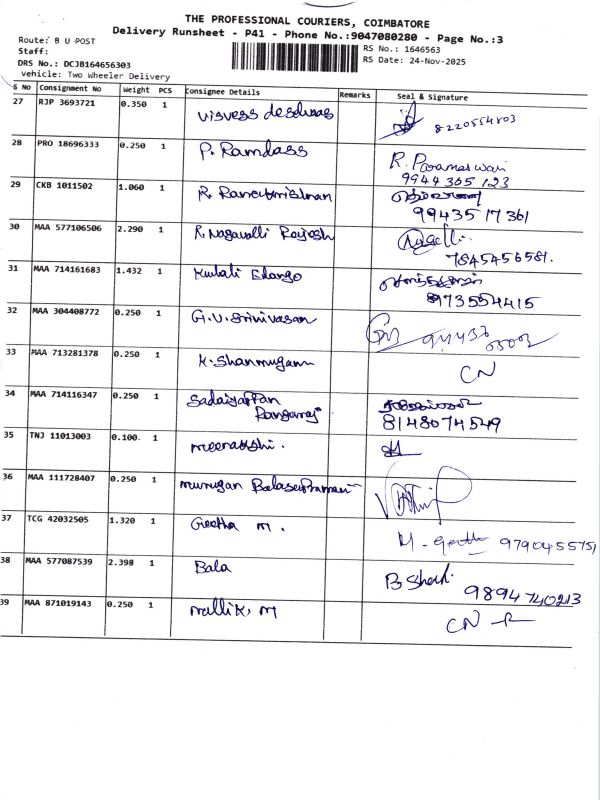 THE PROFESSIONAL COURIERS, COIMBATORE
Delivery Runsheet - P41 - Phone No.:9047080280 - Page No.:3
Route: B U POST
RS No.: 1646563
Staff:
RS Date: 24-Nov-2025
DRS No.: DCJB164656303
vehicle: Two Wheeler Delivery
S No Consignment No Weight PCS Consignee Details Remarks Seal & Signature
27 RJP 3693721 0.350 1 8220554803
28 PRO 18696333 0.250 1 P. Ramdass R. Parameswari
9944 365 123
29 CKB 1011502 1.060 1 R.
99435 17361
30 MAA 577106506 2.290 1 R. Nagavalli Rajesh
7845456581.
31 MAA 714161683 1.432 1 Elango
8973554415
32 MAA 304408772 0.250 1 G.V. Srinivasan
33 MAA 713281378 0.250 1 K. Shanmugam CN
34 MAA 714116347 0.250 1 Sadaiyappan
Rangaraj 8148074549
35 TNJ 11013003 0.100 1 meenakshi.
36 MAA 111728407 0.250 1 murugan Balasubramani
37 TCG 42032505 1.320 1 Geetha M. M. Geetha 9790455751
38 MAA 577087539 2.398 1 Bala B.
9894740213
39 MAA 871019143 0.250 1 mallik. M CN